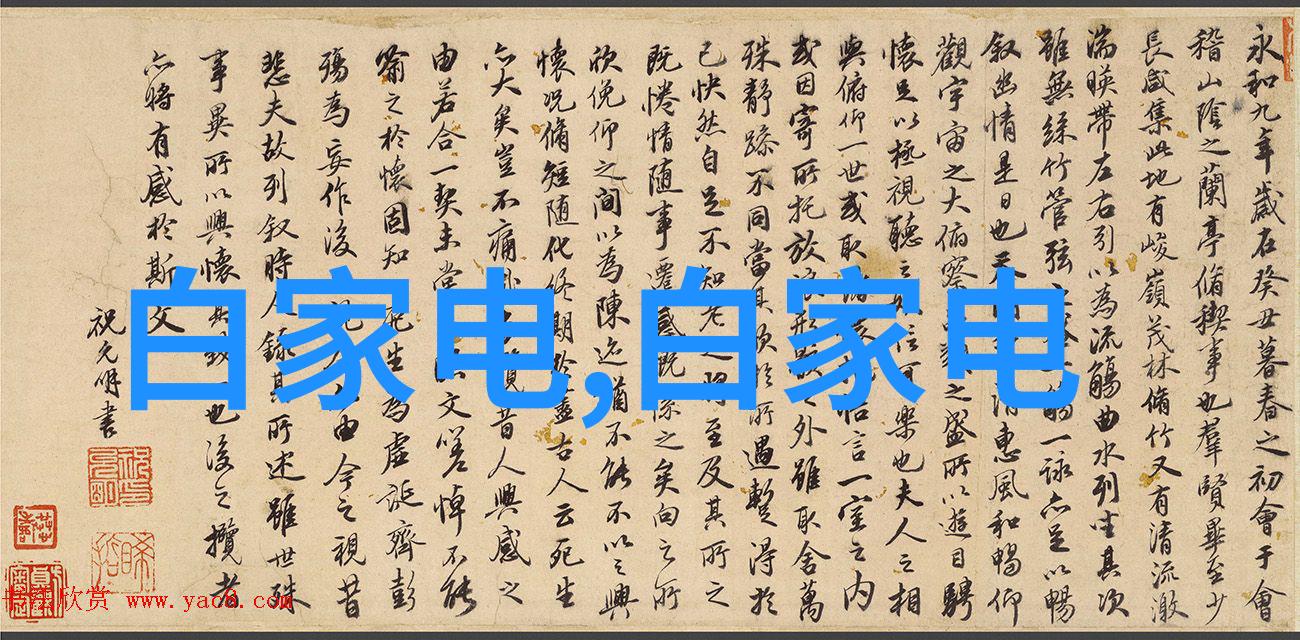 永和九年歲在癸丑暮春之初會于會
稽山陰之蘭亭脩稧事也羣賢畢至少
長咸集此地有峻嶺茂林脩竹又有清流激
湍暎帶左右引以為流觴曲水列坐其次
雖無絲竹管弦觴一詠亦足以暢
叙幽情是日也天清惠風和暢仰
觀宇宙之大俯察之盛所以遊目騁
懷足以極視聽之信可樂也夫人之相
與俯仰一世或取悟言一室之內
或因寄所托放浪形骸之外雖取舍萬
殊静躁不同當其欣於所遇暫得於
己怏然自足不知老之將至及其所之
既惓情随事遷感慨係之矣向之所
欣俛仰之間以為陳迹猶不能不以之興
懷況脩短随化終期於盡古人云死生
亦大矣豈不痛昔人興感之
由若合一契未嘗臨文嗟悼不能
喻之於懷固知死生為虛誕齊彭
殤為妄作後由今之視昔
悲夫故列叙時人錄其所述雖世殊
事異所以興懷其致一也後之攬者
亦將有感於斯文
祝允明書
白家电,白家电
书法欣赏 www.yac8.com